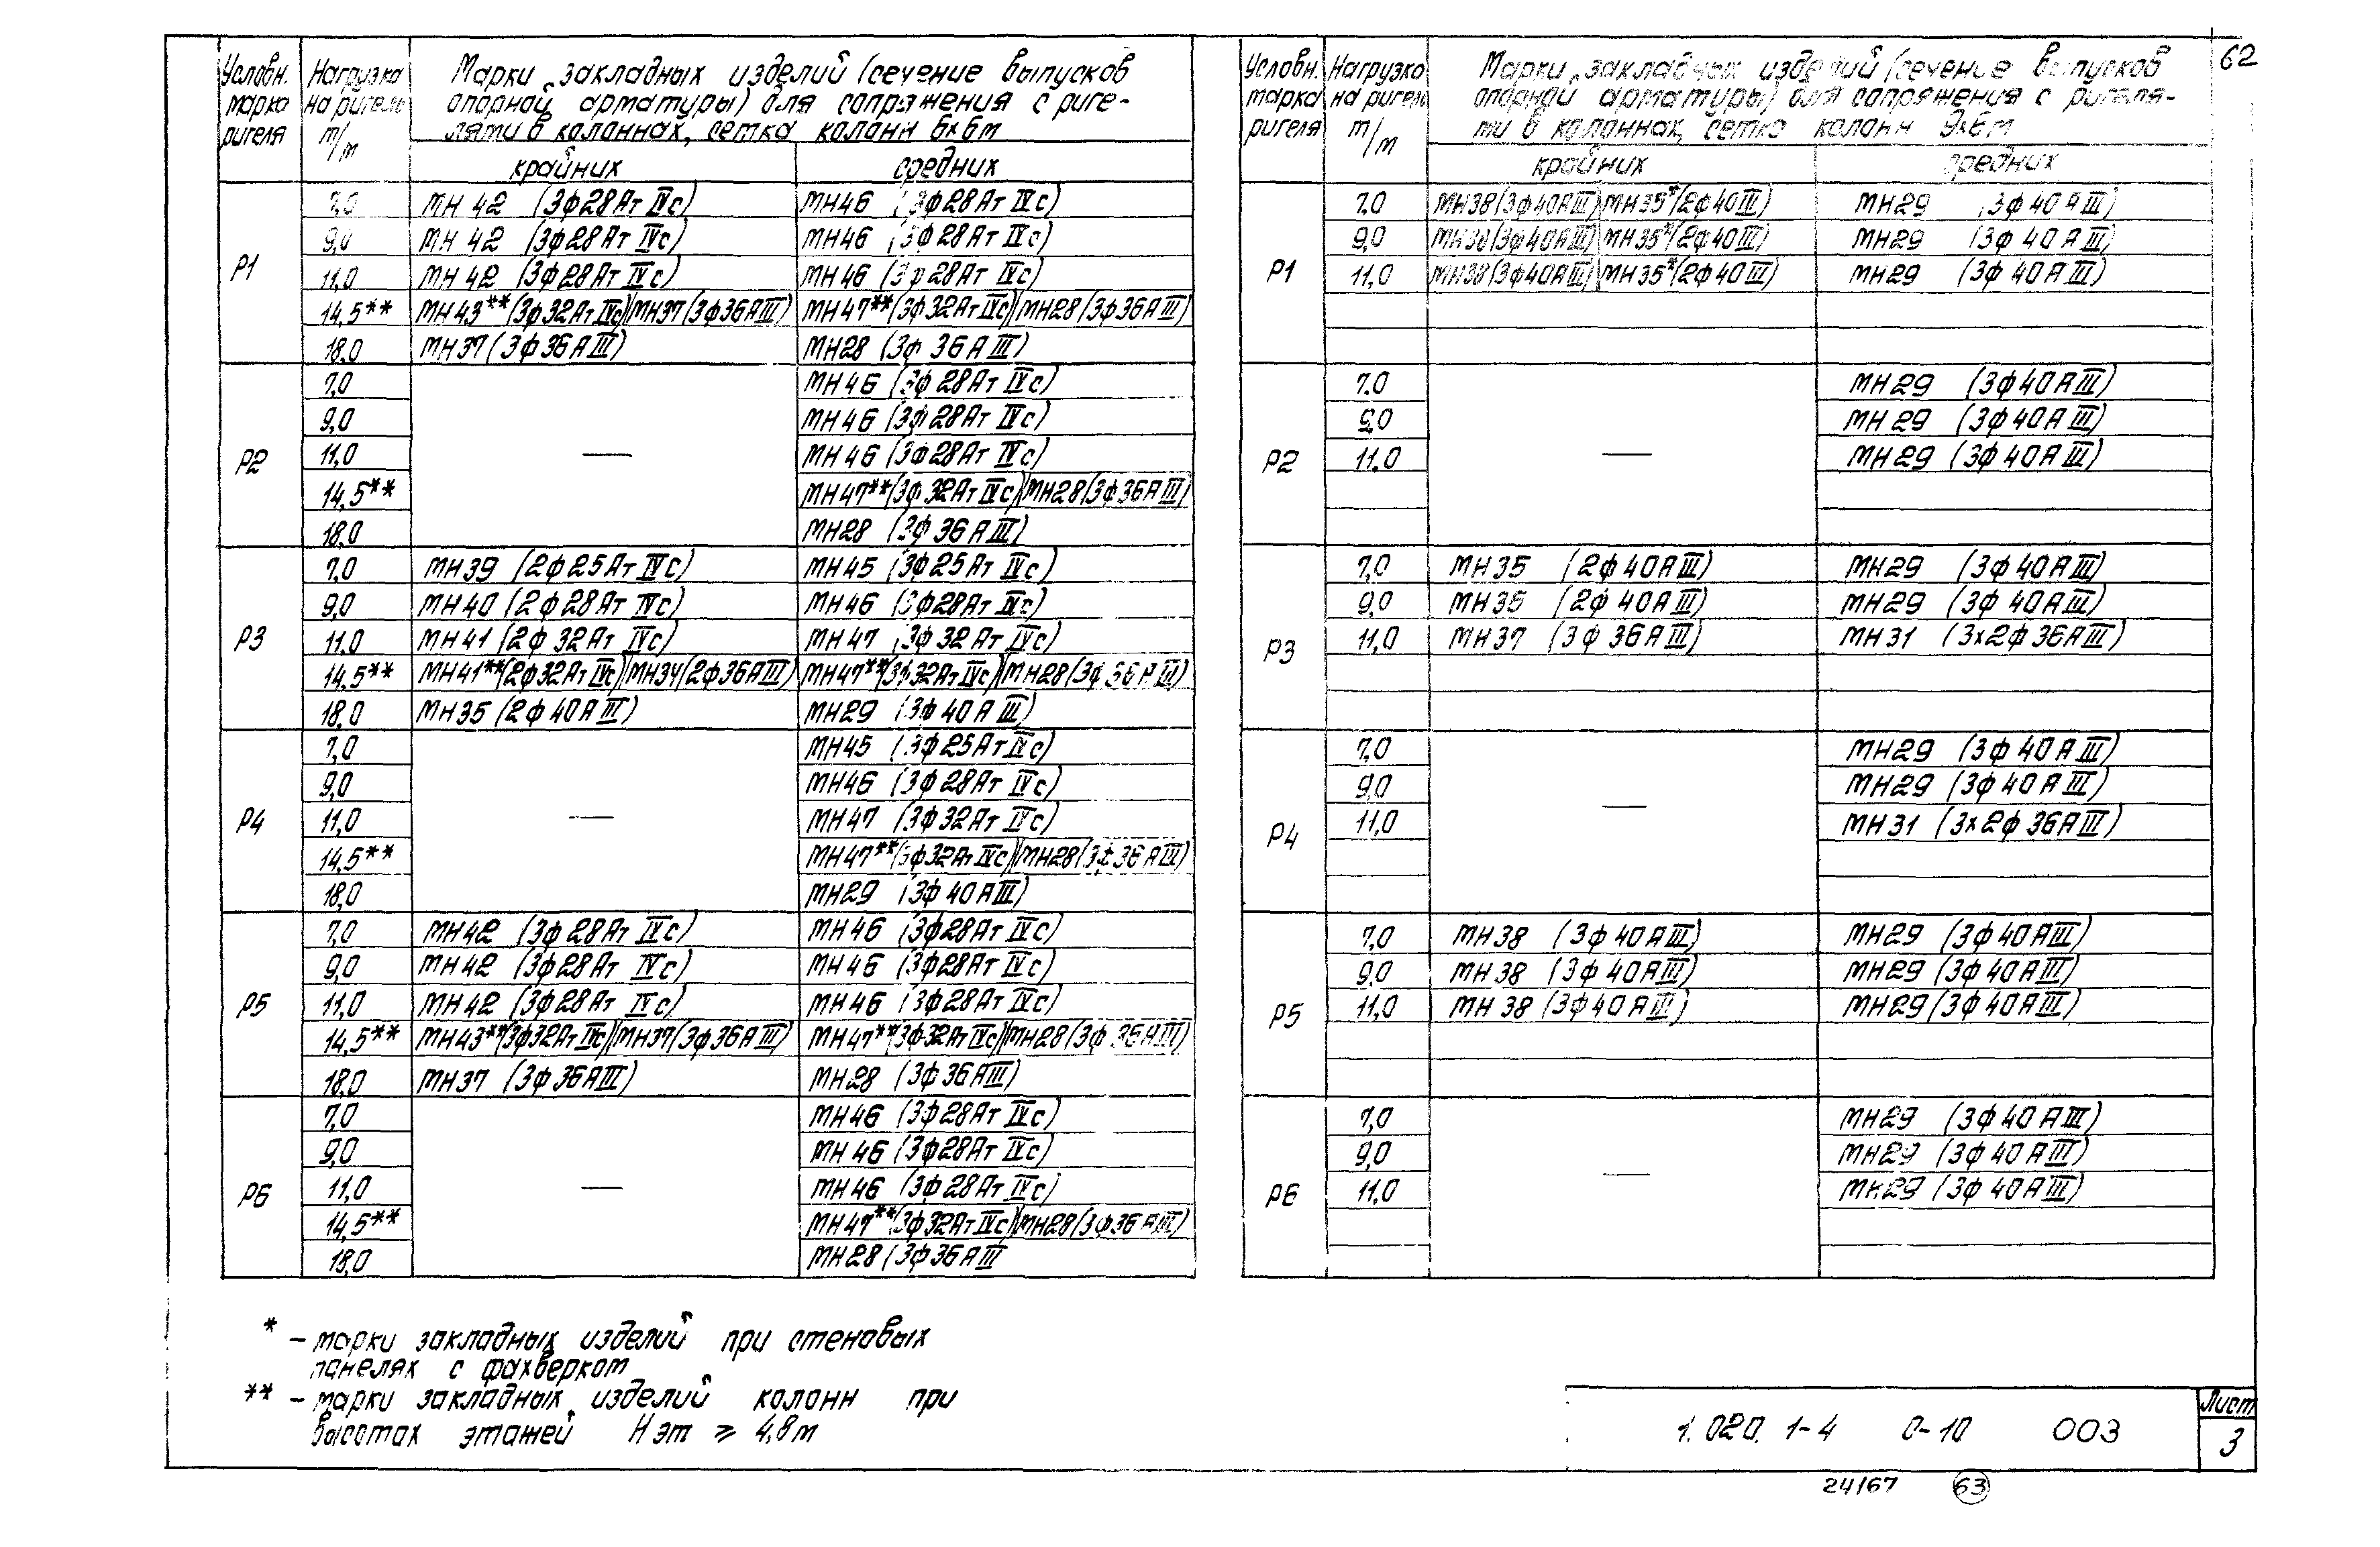 62
Условн. марка ригеля
Нагрузка на ригель т/м
Марки закладных изделий (сечение выпусков
опорной арматуры) для сопряжения с риге-
лями в колоннах, сетка колонн 6х6м
крайних средних
Р1
7,0 МН 42 (3ф28Ат IVс) МН46 (3ф28Ат IVс)
9,0 МН 42 (3ф28Ат IVс) МН46 (3ф28Ат IVс)
11,0 МН 42 (3ф28Ат IVс) МН46 (3ф28Ат IVс)
14,5** МН43**(3ф32Ат IVс)(МН37(3ф36АIII) МН47**(3ф32Ат IVс)(МН28(3ф36АIII)
18,0 МН37(3ф36АIII) МН28 (3ф 36АIII)
Р2
7,0 МН46 (3ф28Ат IVс)
9,0 МН46 (3ф28Ат IVс)
11,0 — МН46 (3ф28Ат IVс)
14,5** МН47**(3ф32Ат IVс)(МН28(3ф36АIII)
18,0 МН28 (3ф 36АIII)
Р3
7,0 МН39 (2ф25Ат IVс) МН45 (3ф25Ат IVс)
9,0 МН40 (2ф28Ат IVс) МН46 (3ф28Ат IVс)
11,0 МН41 (2ф32Ат IVс) МН47 (3ф32Ат IVс)
14,5** МН41**(2ф32Ат IVс)(МН34(2ф36АIII) МН47**(3ф32Ат IVс)(МН28(3ф36АIII)
18,0 МН35 (2ф40АIII) МН29 (3ф40АIII)
Р4
7,0 МН45 (3ф25Ат IVс)
9,0 МН46 (3ф28Ат IVс)
11,0 — МН47 (3ф32Ат IVс)
14,5** МН47**(3ф32Ат IVс)(МН28(3ф36АIII)
18,0 МН29 (3ф40АIII)
Р5
7,0 МН42 (3ф28Ат IVс) МН46 (3ф28Ат IVс)
9,0 МН42 (3ф28Ат IVс) МН46 (3ф28Ат IVс)
11,0 МН42 (3ф28Ат IVс) МН46 (3ф28Ат IVс)
14,5** МН43**(3ф32Ат IVс)(МН37(3ф36АIII) МН47**(3ф32Ат IVс)(МН28(3ф36АIII)
18,0 МН37 (3ф36АIII) МН28 (3ф36АIII)
Р6
7,0 МН46 (3ф28Ат IVс)
9,0 МН46 (3ф28Ат IVс)
11,0 — МН46 (3ф28Ат IVс)
14,5** МН47**(3ф32Ат IVс)(МН28(3ф36АIII)
18,0 МН28(3ф36АIII
Условн. марка ригеля
Нагрузка на ригель т/м
Марки закладных изделий (сечение выпусков
опорной арматуры) для сопряжения с ригеля-
ми в колоннах, сетка колонн 9х6м
крайних средних
Р1
7,0 МН38(3ф40АIII)(МН35*(2ф40III) МН29 (3ф40АIII)
9,0 МН38(3ф40АIII)(МН35*(2ф40III) МН29 (3ф40АIII)
11,0 МН38(3ф40АIII)(МН35*(2ф40III) МН29 (3ф40АIII)
Р2
7,0 МН29 (3ф40АIII)
9,0 МН29 (3ф40АIII)
11,0 — МН29 (3ф40АIII)
Р3
7,0 МН35 (2ф40АIII) МН29 (3ф40АIII)
9,0 МН35 (2ф40АIII) МН29 (3ф40АIII)
11,0 МН37 (3ф36АIII) МН31 (3х2ф36АIII)
Р4
7,0 МН29 (3ф40АIII)
9,0 МН29 (3ф40АIII)
11,0 — МН31 (3х2ф36АIII)
Р5
7,0 МН38 (3ф40АIII) МН29 (3ф40АIII)
9,0 МН38 (3ф40АIII) МН29 (3ф40АIII)
11,0 МН38 (3ф40АIII) МН29 (3ф40АIII)
Р6
7,0 МН29 (3ф40АIII)
9,0 МН29 (3ф40АIII)
11,0 — МН29 (3ф40АIII)
* – марки закладных изделий при стеновых
панелях с фахверком
** – марки закладных изделий колонн при
высотах этажей Нэт ⩾ 4,8м
1.020.1-4 0-10 003
Лист
3
24167 63